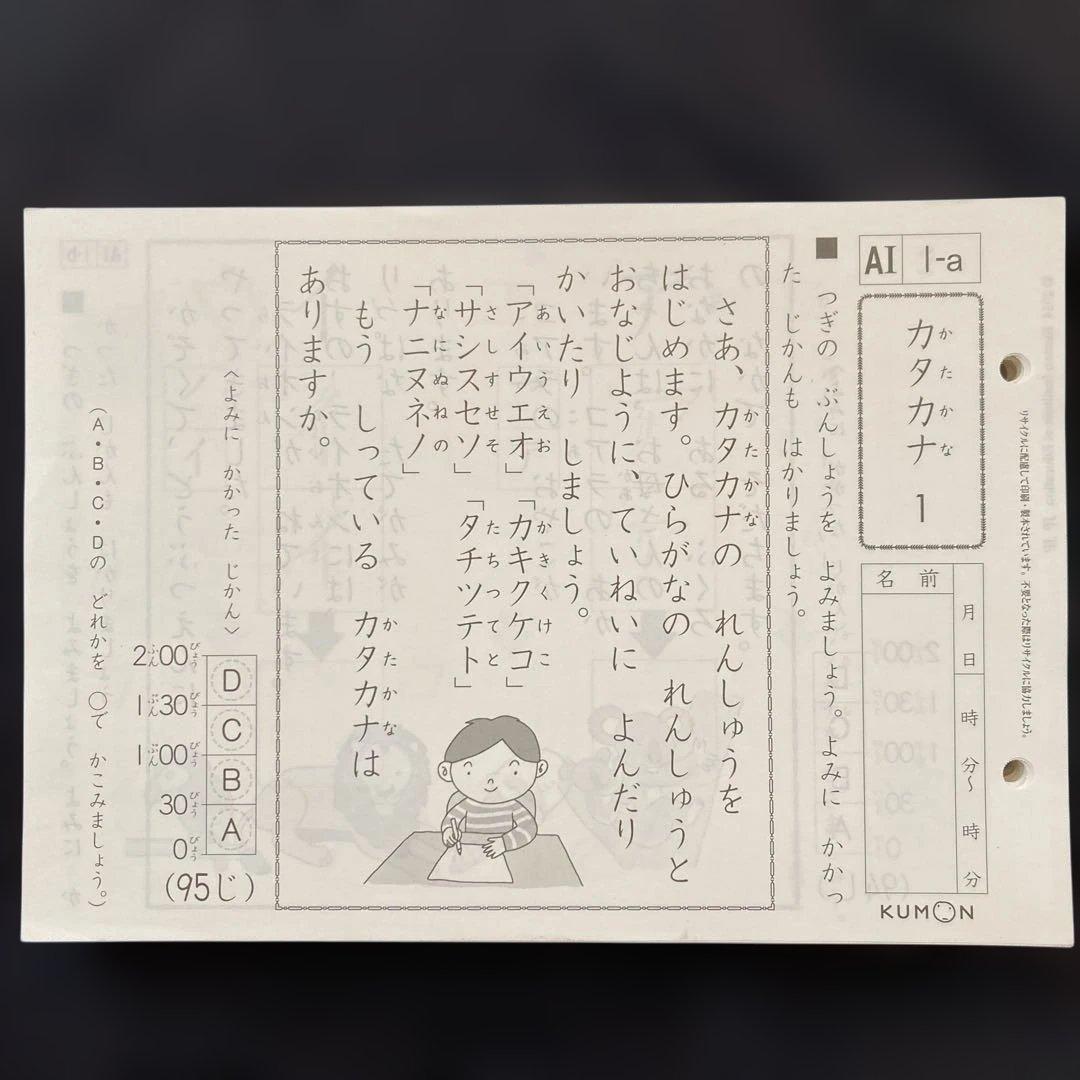 AI 1-a
カタカナ 1
かたかな
名前
月 日
時 分〜 時 分
KUMON
リサイクルに配慮して印刷・製本されています。不要となった際はリサイクルに協力しましょう。
■ つぎの ぶんしょうを よみましょう。よみに かかっ
た じかんも はかりましょう。
さあ、カタカナの れんしゅうを
かたかな
はじめます。ひらがなの れんしゅうと
おなじように、ていねいに よんだり
かいたり しましょう。
「アイウエオ」「カキクケコ」
あいうえお かきくけこ
「サシスセソ」「タチツテト」
さしすせそ たちつてと
「ナニヌネノ」
なにぬねの
もう しっている カタカナは
かたかな
ありますか。
〈よみに かかった じかん〉
D
C
B
A
2ぷん00びょう
1ぷん30びょう
1ぷん00びょう
30びょう
0びょう
(95じ)
(A・B・C・Dの どれかを ○で かこみましょう。)